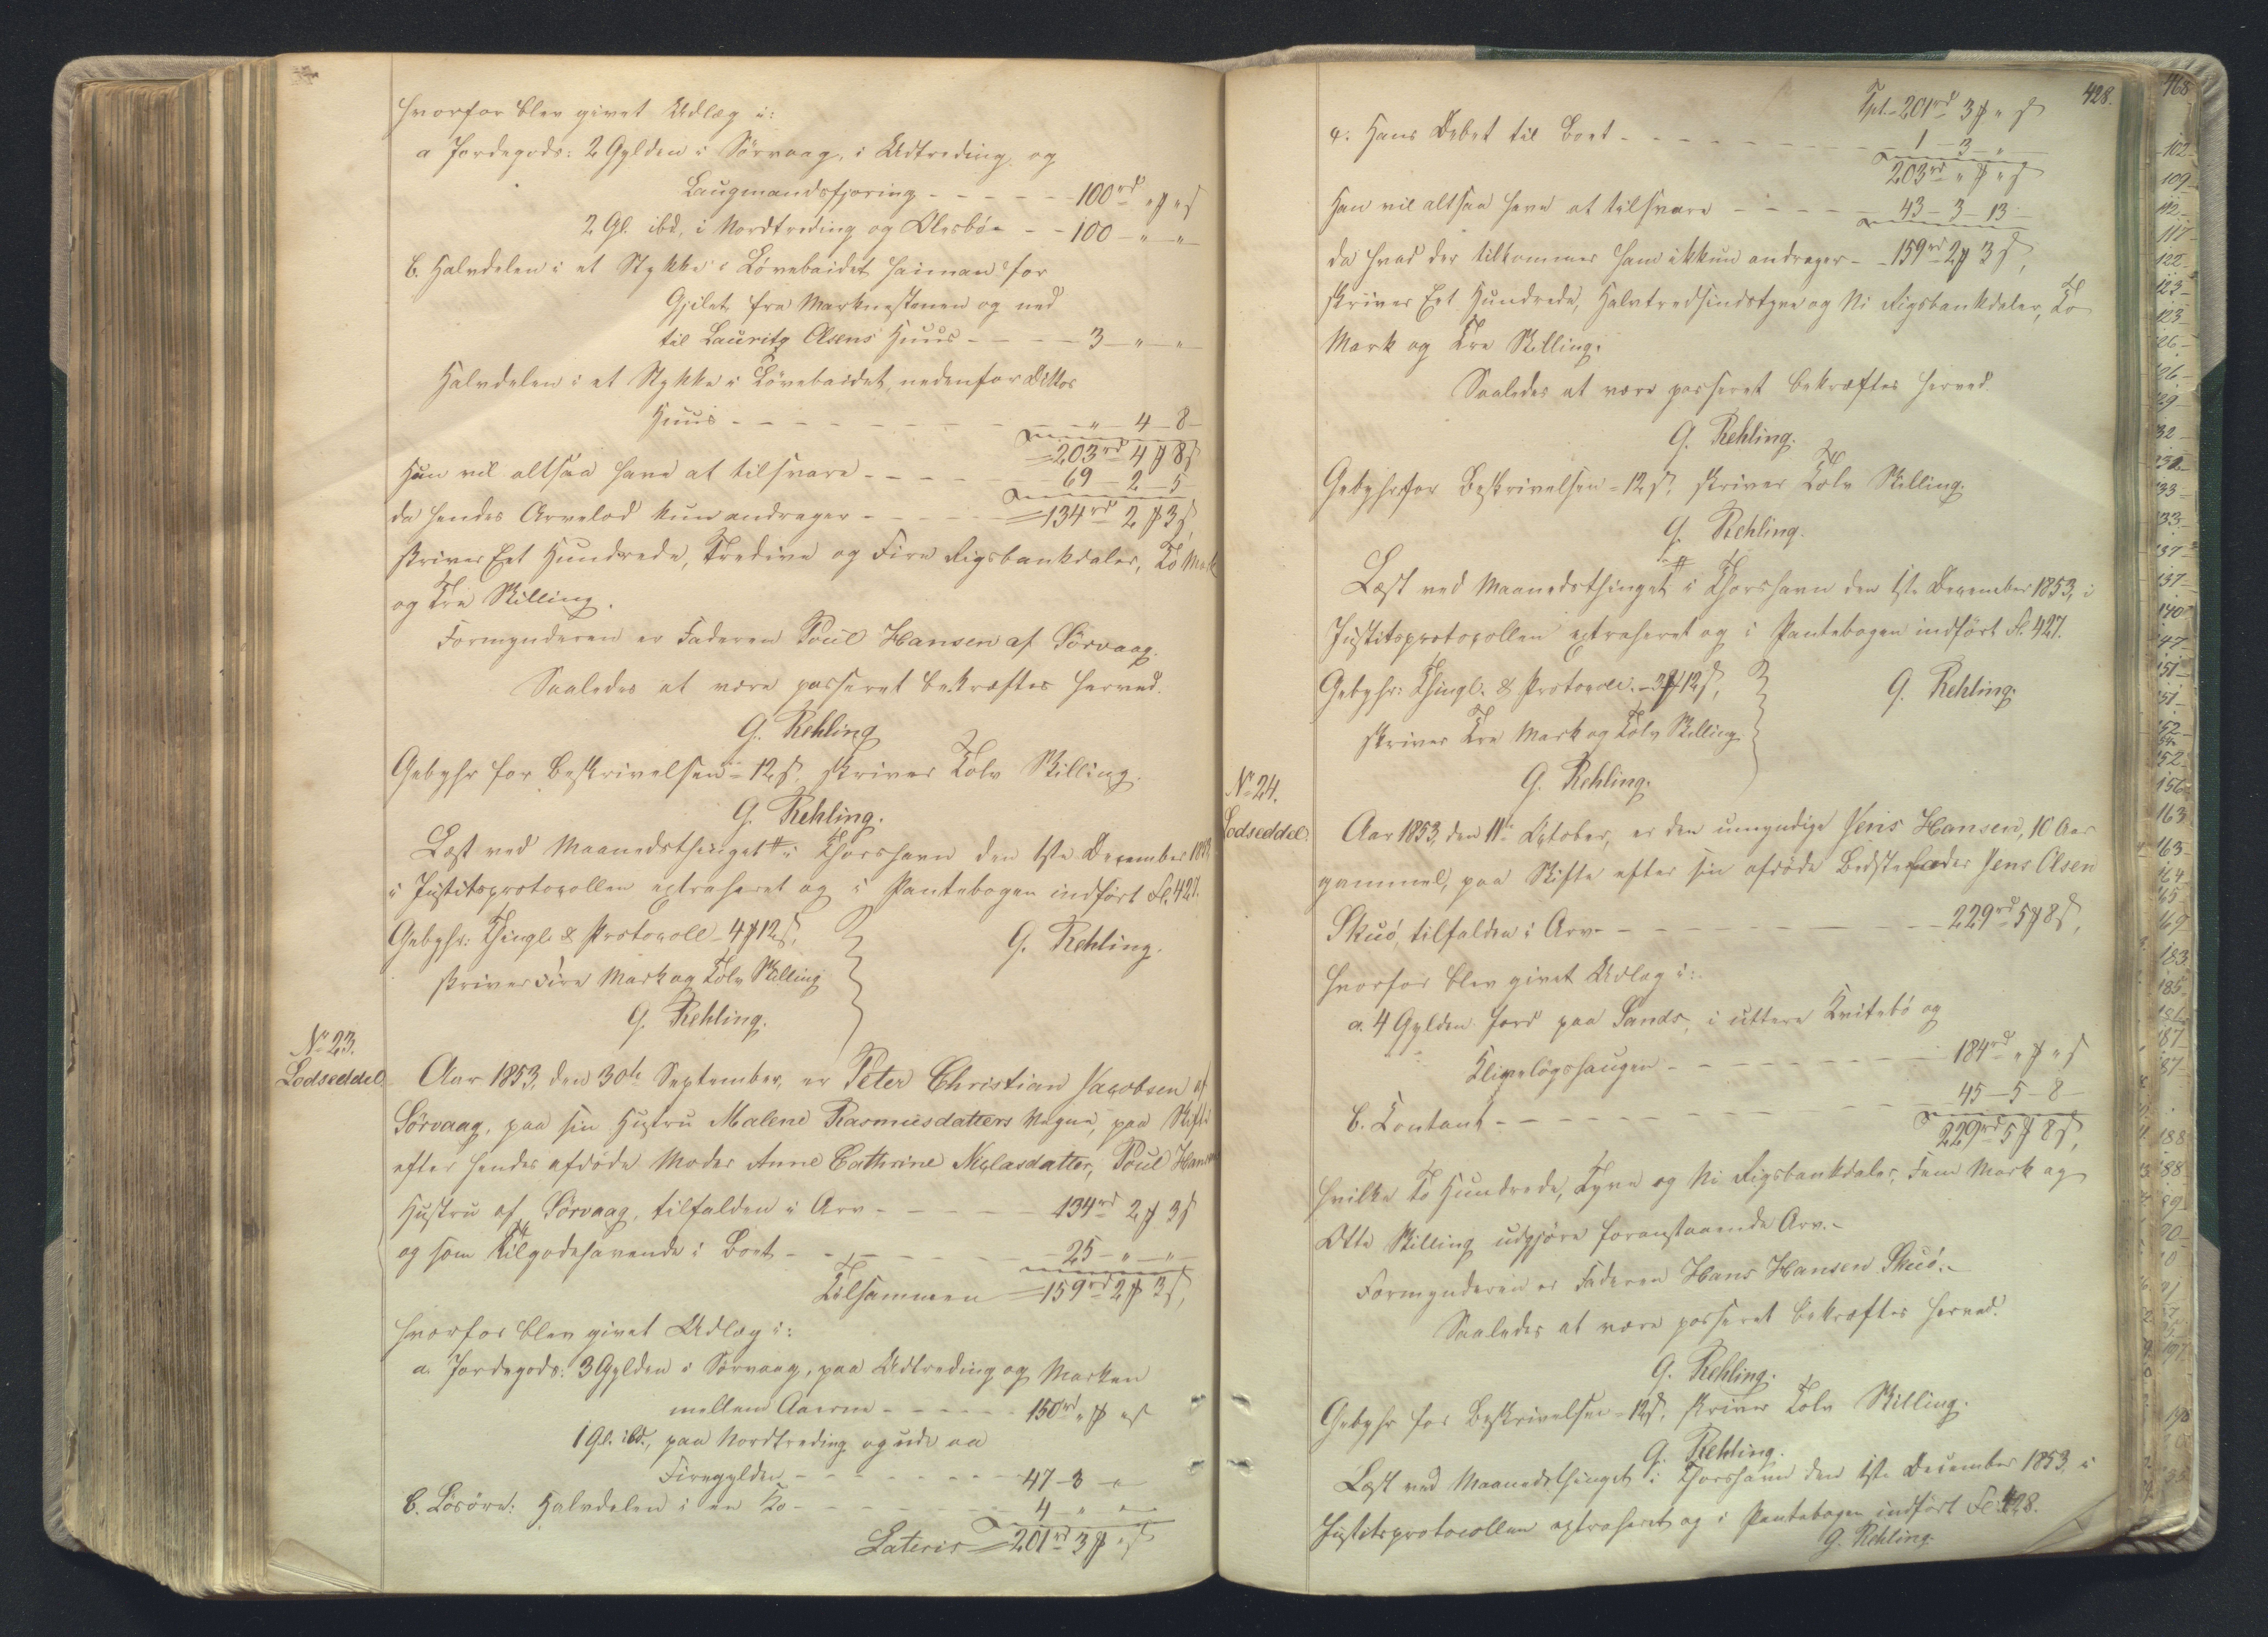 hvorfor blev givet Udlæg i:
a Jordegods: 2 Gylden i Sörvaag, i Udtreding og
Laugmandsfjering - - - - - 100rd „ ₰ „ s
2 Gl. ibd. i Nordtreding og - - 100 - „ - „
b. Halvdelen i et Stykke i Lövebaidet for
Gjilet fra Marknestenen og ned
til Lauritz Olsens Huus - - - - 3 - „ - „
Halvdelen i et Stykke i Lövebaidet, nedenfor dittos
Huus - - - - - - - - „ - 4 - 8 -
= 203rd 4 ₰ 8 s
Hun vil altsaa have at tilsvare - - - - - 69 - 2 - 5
da hendes Arvelod kun andrager - - - - = 134rd 2 ₰ 3 s,
skriver Eet Hundrede, Tredive og Fire Rigsbankdaler, To Mark
og Tre Skilling.
Formynderen er Faderen Poul Hansen af Sörvaag.
Saaledes at være passeret bekræftes herved.
G. Rehling
Gebyhr for Beskrivelsen = 12 s. skriver Tolv Skilling.
G. Rehling.
Læst ved Maanedsthinget i Thorshavn den 1ste December 1853,
i Justitsprotocollen extraheret og i Pantebogen indfört Fl. 427.
Gebyhr: Thingl. & Protocoll - 4 ₰ 12 s,
G. Rehling.
skriver Fire Mark og Tolv Skilling
G. Rehling.
No 23.
Lodseddel.
Aar 1853, den 30te September, er Peter Christian Jacobsen af
Sörvaag, paa sin Hustru Malene Rasmusdatters Vegne, paa Skifte
efter hendes afdöde Moder Anne Cathrine Niclasdatter, Poul Hansens
Hustru af Sörvaag, tilfalden i Arv - - - - - 134rd 2 ₰ 3 s
og som Tilgodehavende i Boet - - - - - - 25 - „ - „ -
Tilsammen = 159rd 2 ₰ 3 s,
hvorfor blev givet Udlæg i:
a. Jordegods: 3 Gylden i Sörvaag, paa Udtreding og Marken
mellem Aaerne - - - - - 150rd „ ₰ „ s
1 Gl. ibd., paa Nordtreding og ude aa
Firegylden - - - - - - - - 47 - 3 - „
b. Lösöre: Halvdelen i en Ko - - - - - - - 4 - „ - „
Lateris = 201rd 3 ₰ „ s
428.
Tpt. = 201rd 3 ₰ „ s
c. Hans Debet til Boet - - - - - - - - 1 - 3 - „
203rd „ ₰ „ s
Han vil altsaa have at tilsvare - - - - - 43 - 3 - 13 -
da hvad der tilkommer ham ikkun andrager - - 159rd 2 ₰ 3 s,
skriver Eet Hundrede, Halvtredsindstyve og Ni Rigsbankdaler, To
Mark og Tre Skilling.
Saaledes at være passeret bekræftes herved.
G. Rehling.
Gebyhr for Beskrivelsen = 12 s, skriver Tolv Skilling.
G. Rehling.
Læst ved Maanedsthinget i Thorshavn den 1ste December 1853, i
Justitsprotocollen extraheret og i Pantebogen indfört Fl. 427.
Gebyhr: Thingl. & Protocoll. - 3 ₰ 12 s,
G. Rehling.
skriver Tre Mark og Tolv Skilling.
G. Rehling.
No 24.
Lodseddel.
Aar 1853, den 11te October, er den umyndige Jens Hansen, 10 Aar
gammel, paa Skifte efter sin afdöde Bedstefader Jens Olsen
Skuö, tilfalden i Arv - - - - - - - - - 229rd 5 ₰ 8 s,
hvorfor blev givet Udlæg i:
a. 4 Gylden Jord paa Sands, i uttere Kvitebö og
- - - - - - - - 184rd „ ₰ „ s
b. Contant - - - - - - - - - - 45 - 5 - 8 -
229rd 5 ₰ 8 s,
hvilke To Hundrede, Tyve og Ni Rigsbankdaler, Fem Mark og
Otte Skilling udgjöre foranstaaende Arv. -
Formynderen er Faderen Hans Hansen Skuö. -
Saaledes at være passeret bekræftes herved.
G. Rehling.
Gebyhr for Beskrivelsen - 12 s, skriver Tolv Skilling.
G. Rehling.
Læst ved Maanedsthinget i Thorshavn den 1ste December 1853 i
Justitsprotocollen extraheret og i Pantebogen indfört Fl. 428.
G. Rehling.